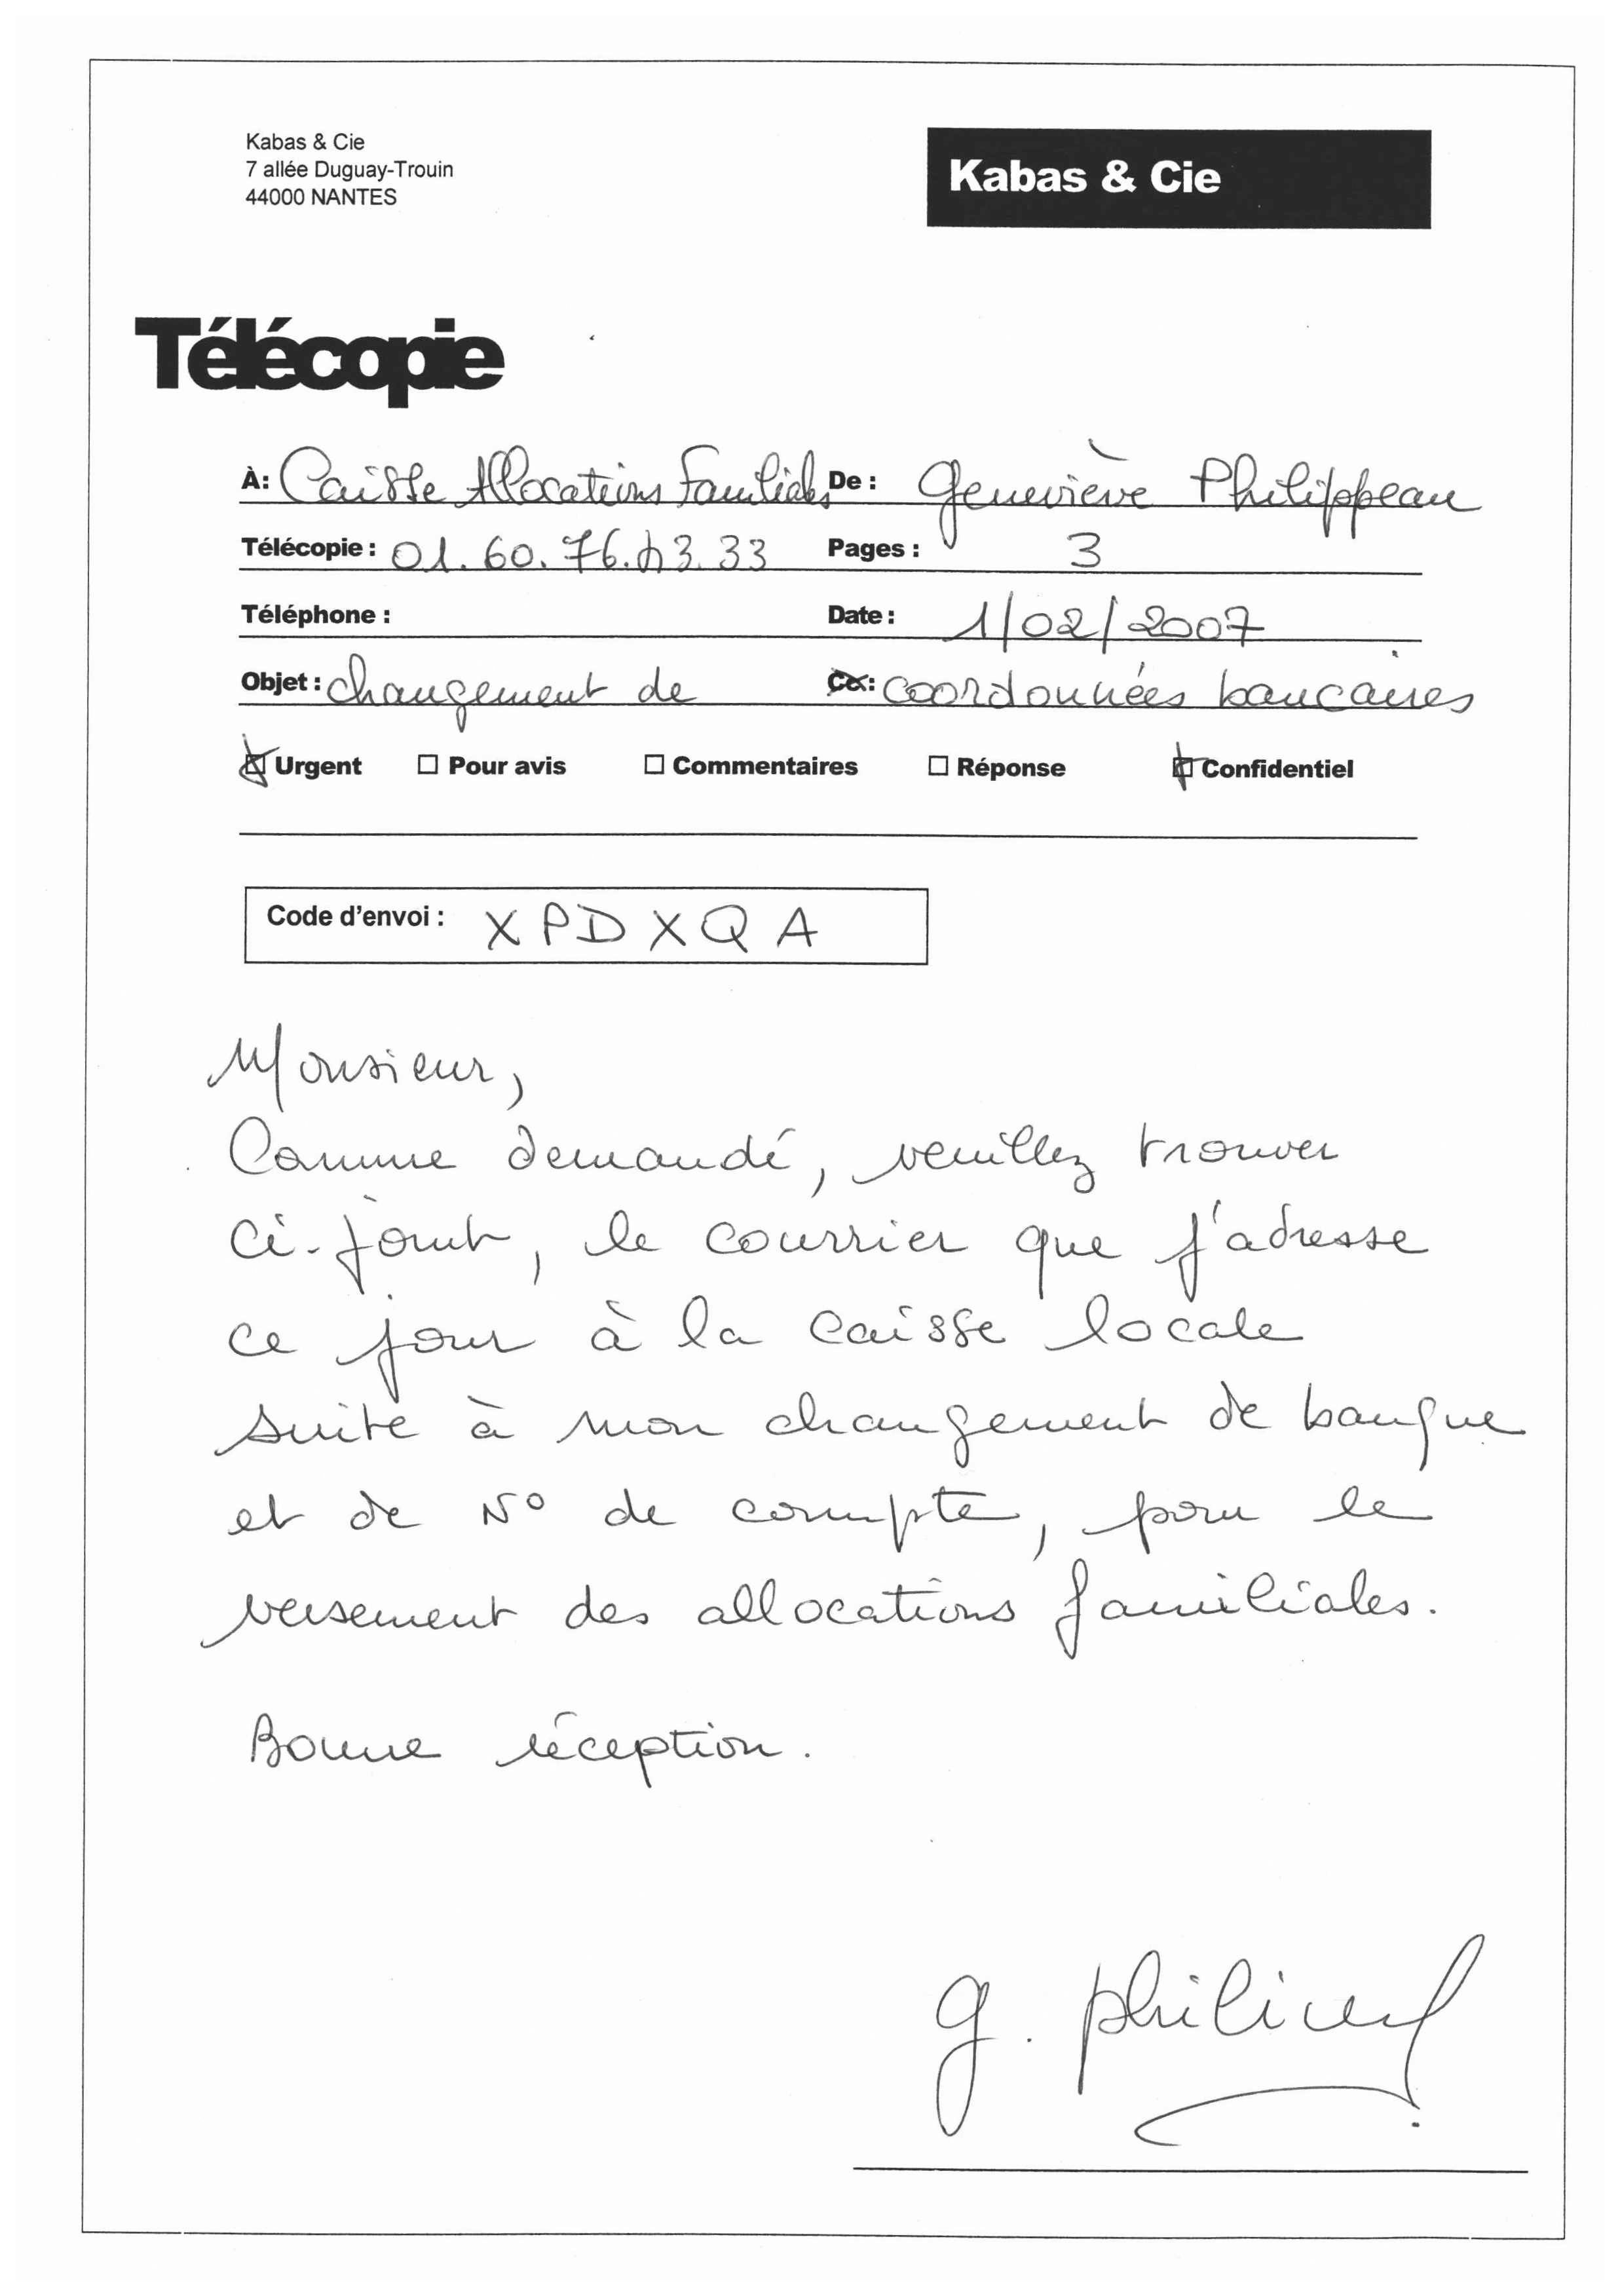 Kabas & Cie
7 allée Duguay-Trouin
44000 NANTES
Kabas & Cie
Télécopie
À: Caisse Allocations Familiales De : Geneviève Philippeau
Télécopie : 01.60.76. 33 Pages : 3
Téléphone : Date : 1/02/2007
Objet : changement de coordonnées bancaires
Urgent Pour avis Commentaires Réponse Confidentiel
Code d'envoi : XPDXQA
Monsieur,
Comme demandé, veuillez trouver
ci-joint, le courrier que j'adresse
ce jour à la caisse locale
suite à mon changement de banque
et de N° de compte, pour le
versement des allocations familiales.
Bonne réception.
G.